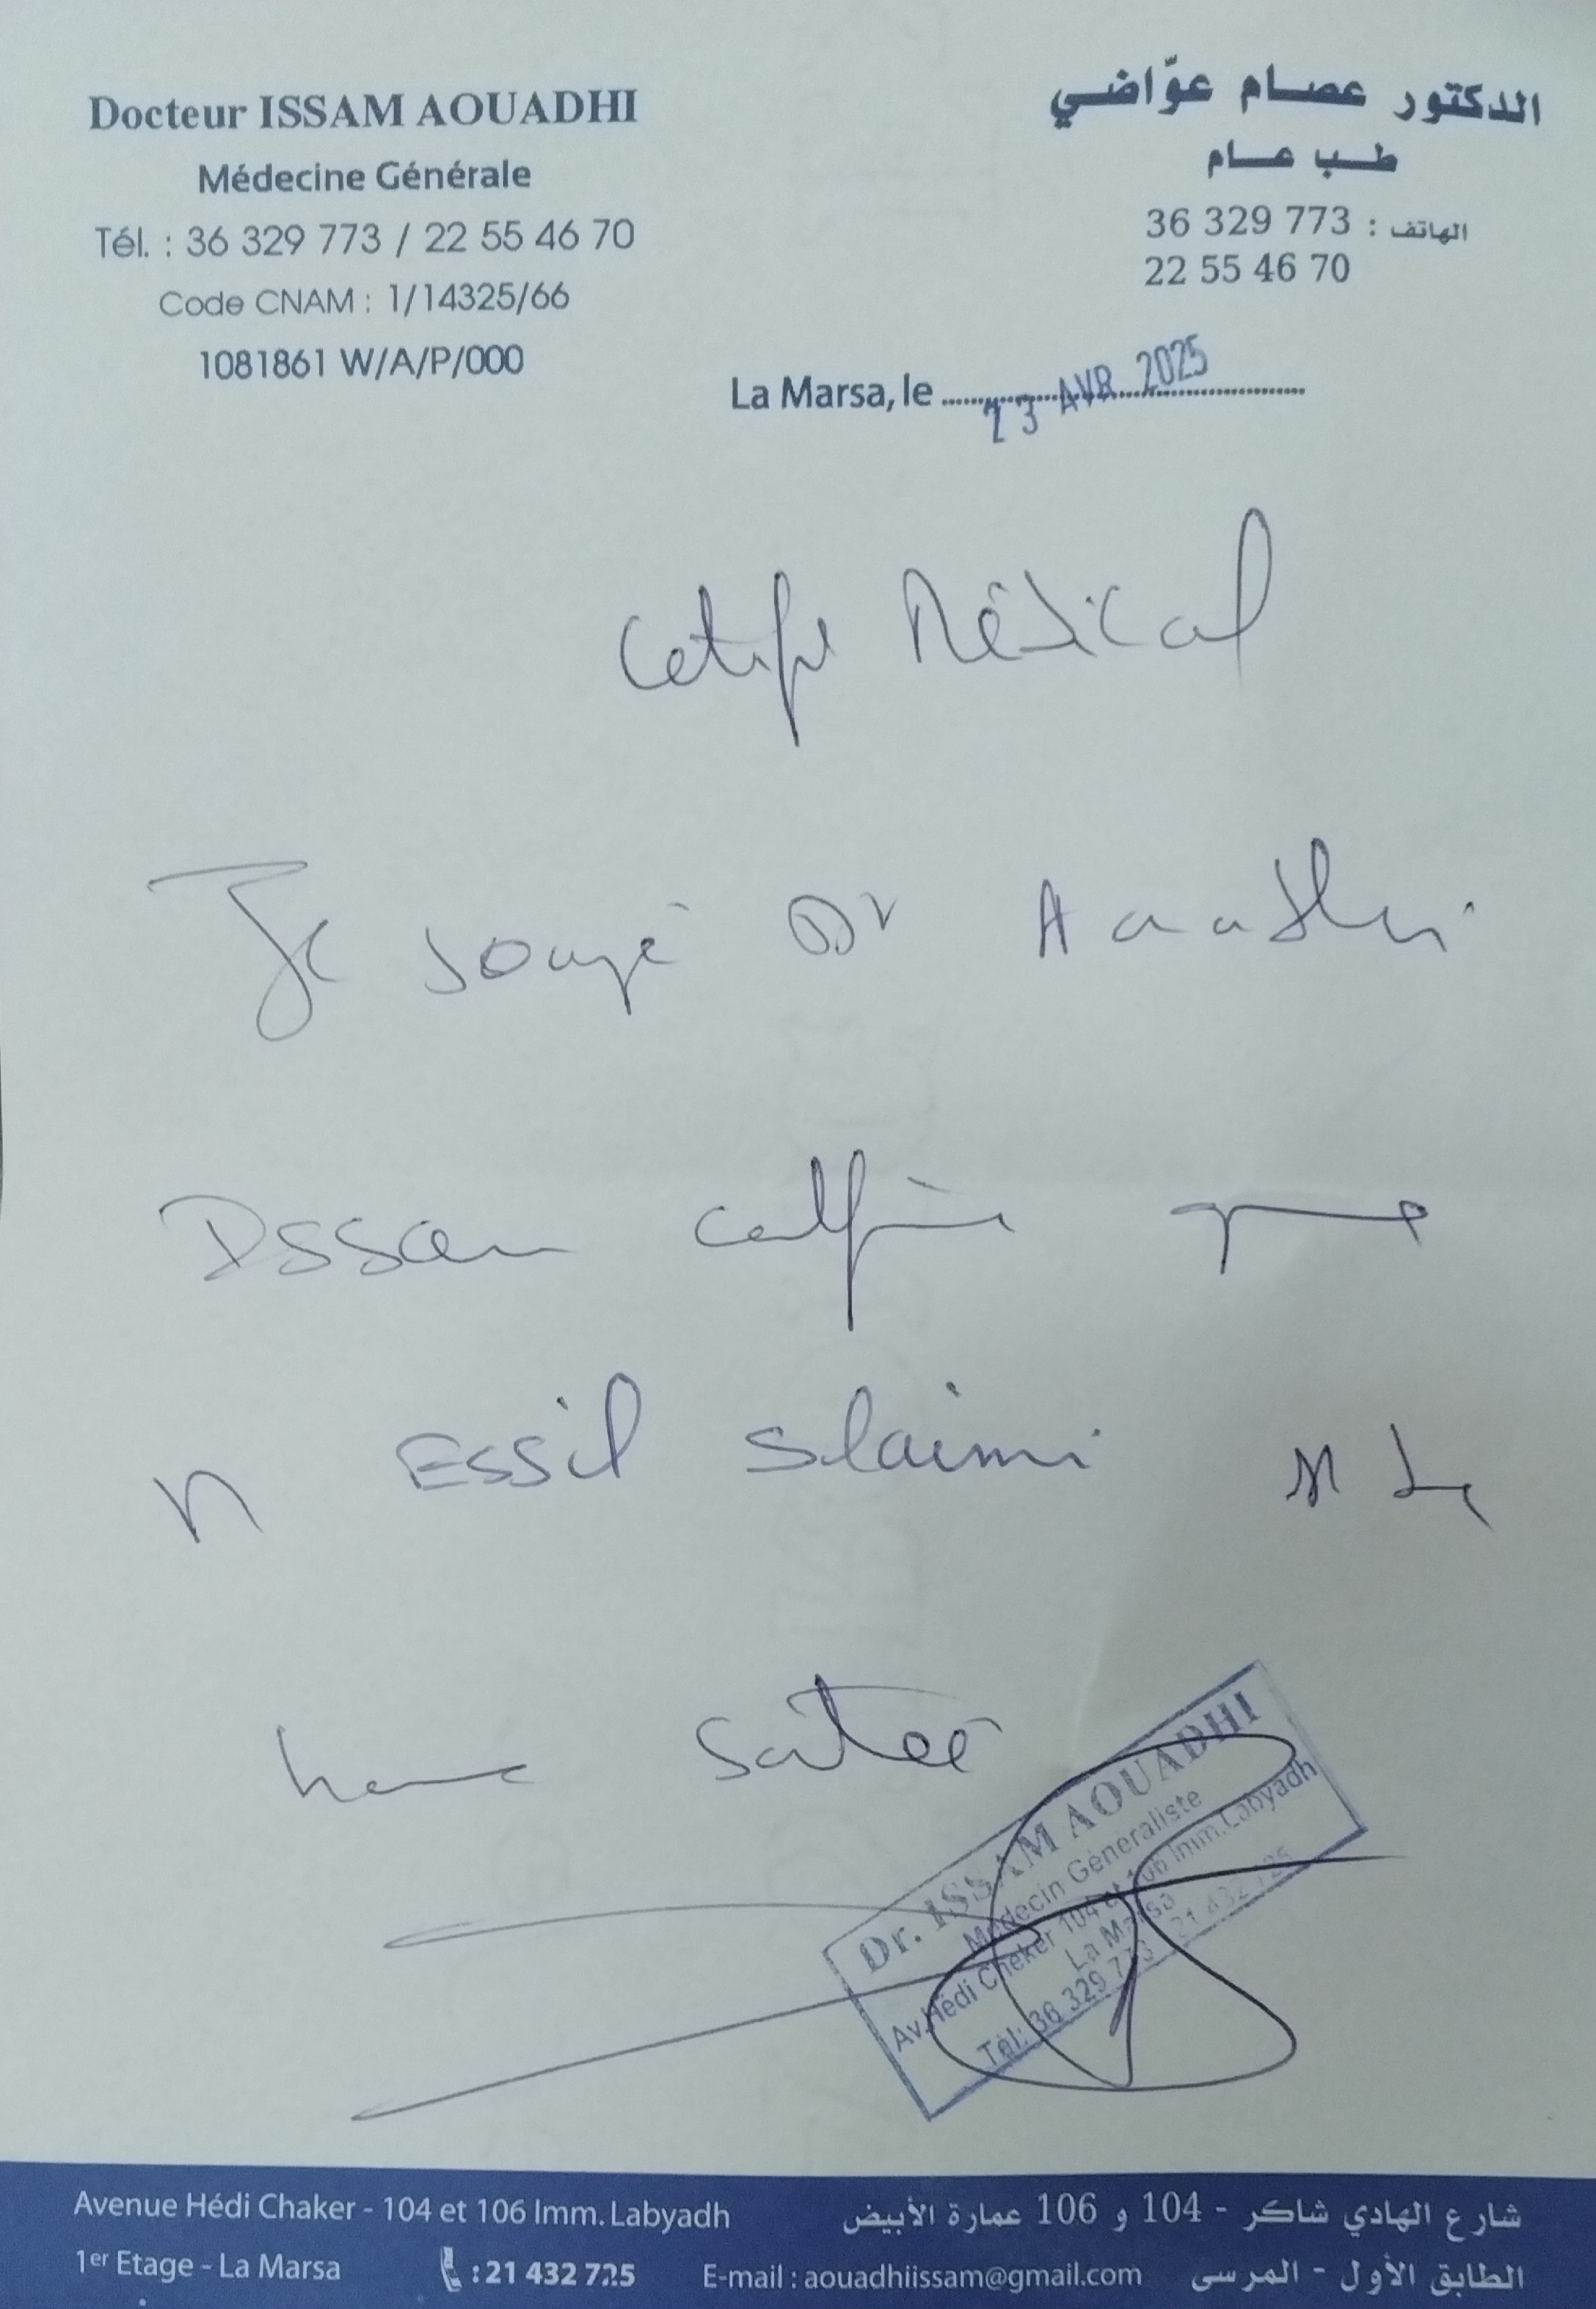 Docteur ISSAM AOUADHI
Médecine Générale
Tél. : 36 329 773 / 22 55 46 70
Code CNAM : 1/14325/66
1081861 W/A/P/000
الدكتور عصام عوّاضي
طب عام
الهاتف : 36 329 773
22 55 46 70
La Marsa, le AVR 2025
Médical
Je Dr Aouadhi
Issam que
Essil Slaimi
Dr. ISSAM AOUADHI
Médecin Généraliste
Av. Hédi Cheker 104 et 106 Imm. Labyadh
La Marsa
Tél: 36 329 773 21 432 725
Avenue Hédi Chaker - 104 et 106 Imm. Labyadh
1er Etage - La Marsa : 21 432 725 E-mail : aouadhiissam@gmail.com
شارع الهادي شاكر - 104 و 106 عمارة الأبيض
الطابق الأول - المرسى